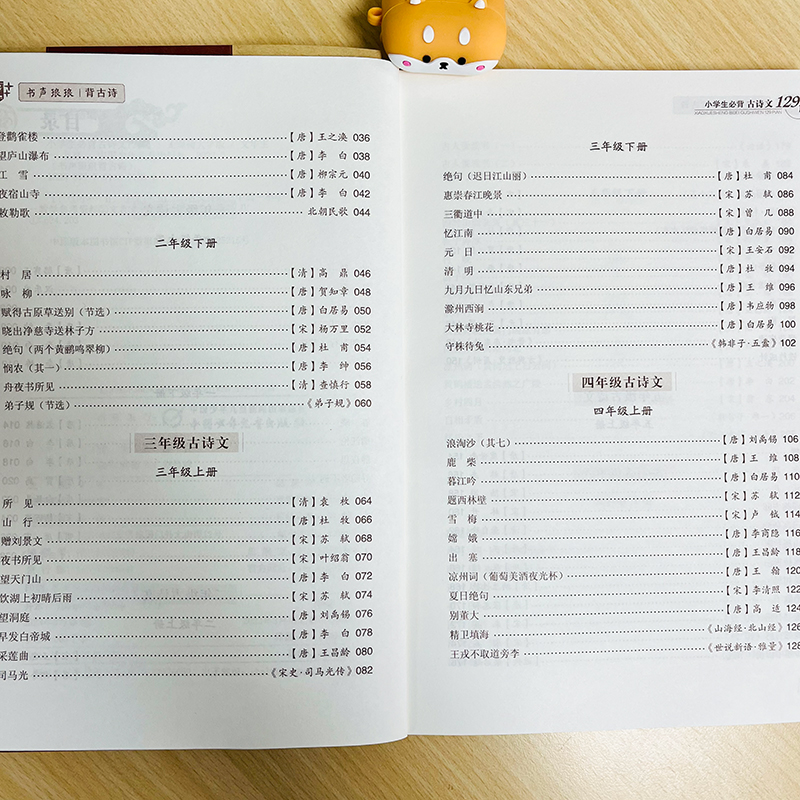 书声琅琅 | 背古诗
登鹳雀楼 【唐】王之涣 036
望庐山瀑布 【唐】李 白 038
江 雪 【唐】柳宗元 040
夜宿山寺 【唐】李 白 042
敕勒歌 北朝民歌 044
二年级下册
村 居 【清】高 鼎 046
咏 柳 【唐】贺知章 048
赋得古原草送别（节选） 【唐】白居易 050
晓出净慈寺送林子方 【宋】杨万里 052
绝句（两个黄鹂鸣翠柳） 【唐】杜 甫 054
悯农（其一） 【唐】李 绅 056
舟夜书所见 【清】查慎行 058
弟子规（节选） 《弟子规》 060
三年级古诗文
三年级上册
所 见 【清】袁 枚 064
山 行 【唐】杜 牧 066
赠刘景文 【宋】苏 轼 068
夜书所见 【宋】叶绍翁 070
望天门山 【唐】李 白 072
饮湖上初晴后雨 【宋】苏 轼 074
望洞庭 【唐】刘禹锡 076
早发白帝城 【唐】李 白 078
采莲曲 【唐】王昌龄 080
司马光 《宋史·司马光传》 082
小学生必背 古诗文 129
三年级下册
绝句（迟日江山丽） 【唐】杜 甫 084
惠崇春江晚景 【宋】苏 轼 086
三衢道中 【宋】曾 几 088
忆江南 【唐】白居易 090
元 日 【宋】王安石 092
清 明 【唐】杜 牧 094
九月九日忆山东兄弟 【唐】王 维 096
滁州西涧 【唐】韦应物 098
大林寺桃花 【唐】白居易 100
守株待兔 《韩非子·五蠹》 102
四年级古诗文
四年级上册
浪淘沙（其七） 【唐】刘禹锡 106
鹿 柴 【唐】王 维 108
暮江吟 【唐】白居易 110
题西林壁 【宋】苏 轼 112
雪 梅 【宋】卢 钺 114
嫦 娥 【唐】李商隐 116
出 塞 【唐】王昌龄 118
凉州词（葡萄美酒夜光杯） 【唐】王 翰 120
夏日绝句 【宋】李清照 122
别董大 【唐】高 适 124
精卫填海 《山海经·北山经》 126
王戎不取道旁李 《世说新语·雅量》 128